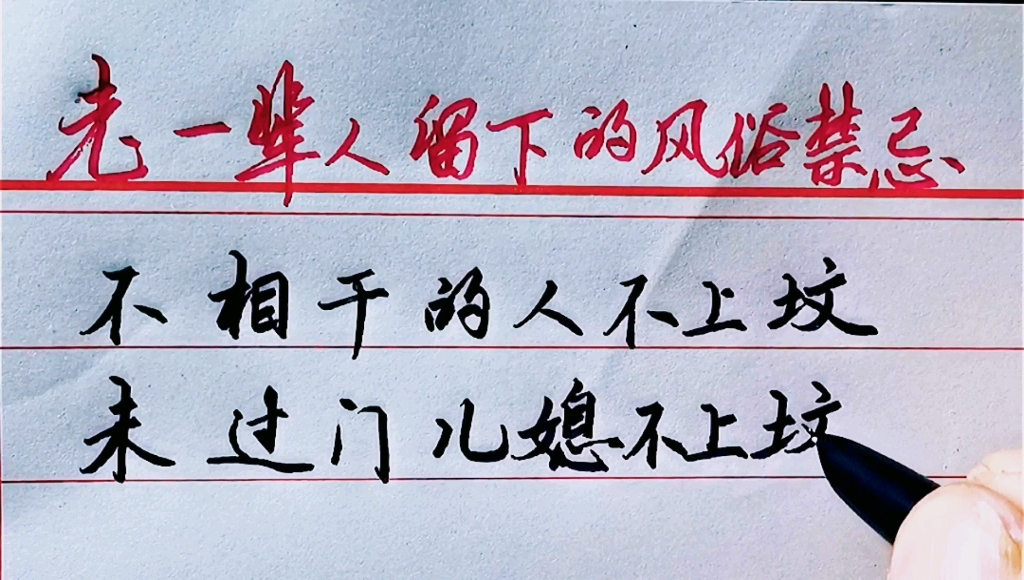 老一辈人留下的风俗禁忌
不相干的人不上坟
未过门儿媳不上坟